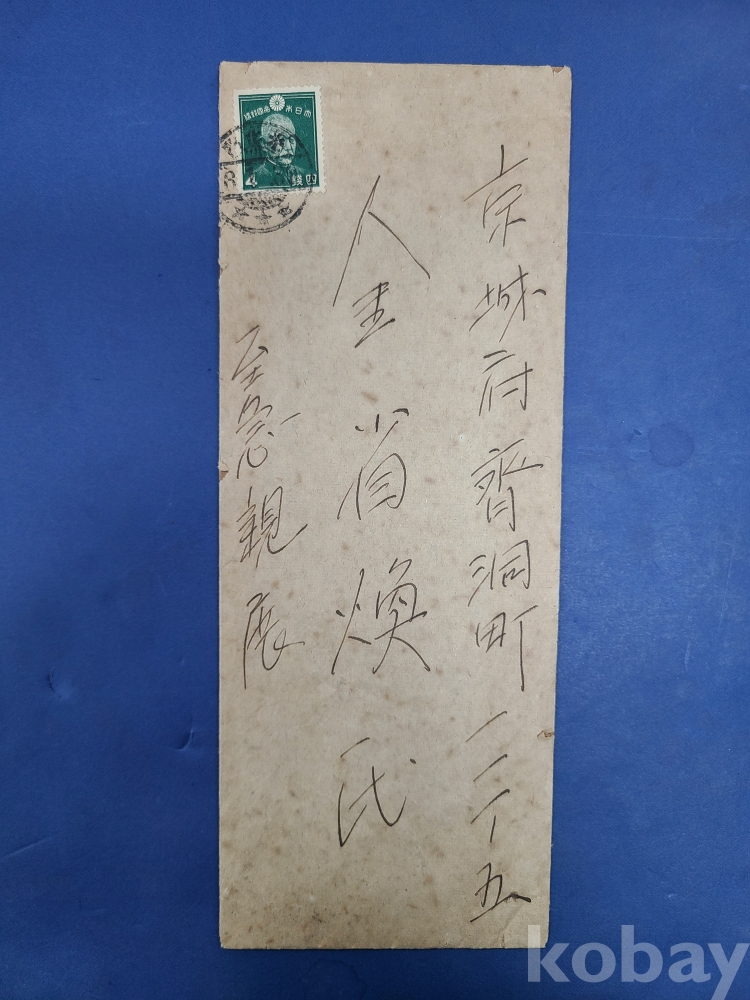 京城府齊洞町一二ノ五
金省煥氏
至急親展
大日本帝國郵便
4
四錢
kobay